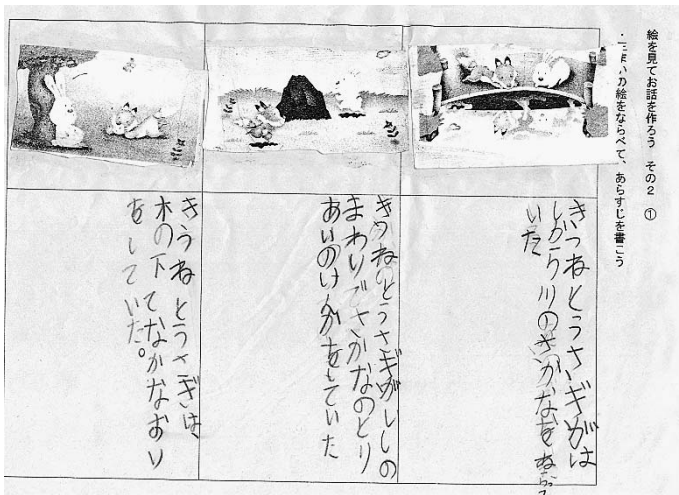 絵を見てお話を作ろう その2 ①
の絵をならべて、あらすじを書こう
きつねとうさぎがは
しから川のさかなをねらって
いた
きつねのとうさぎがいしの
まわりでさかなのとり
あいのけんかをしていた
きうねとうさぎは、
木の下でなかなおり
をしていた。